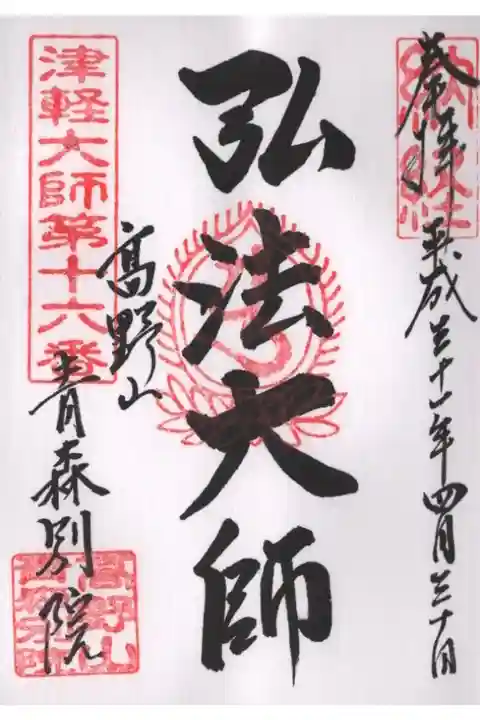 奉拝 平成三十一年四月三十日
弘法大師
津軽大師第十六番
髙野山
青森別院